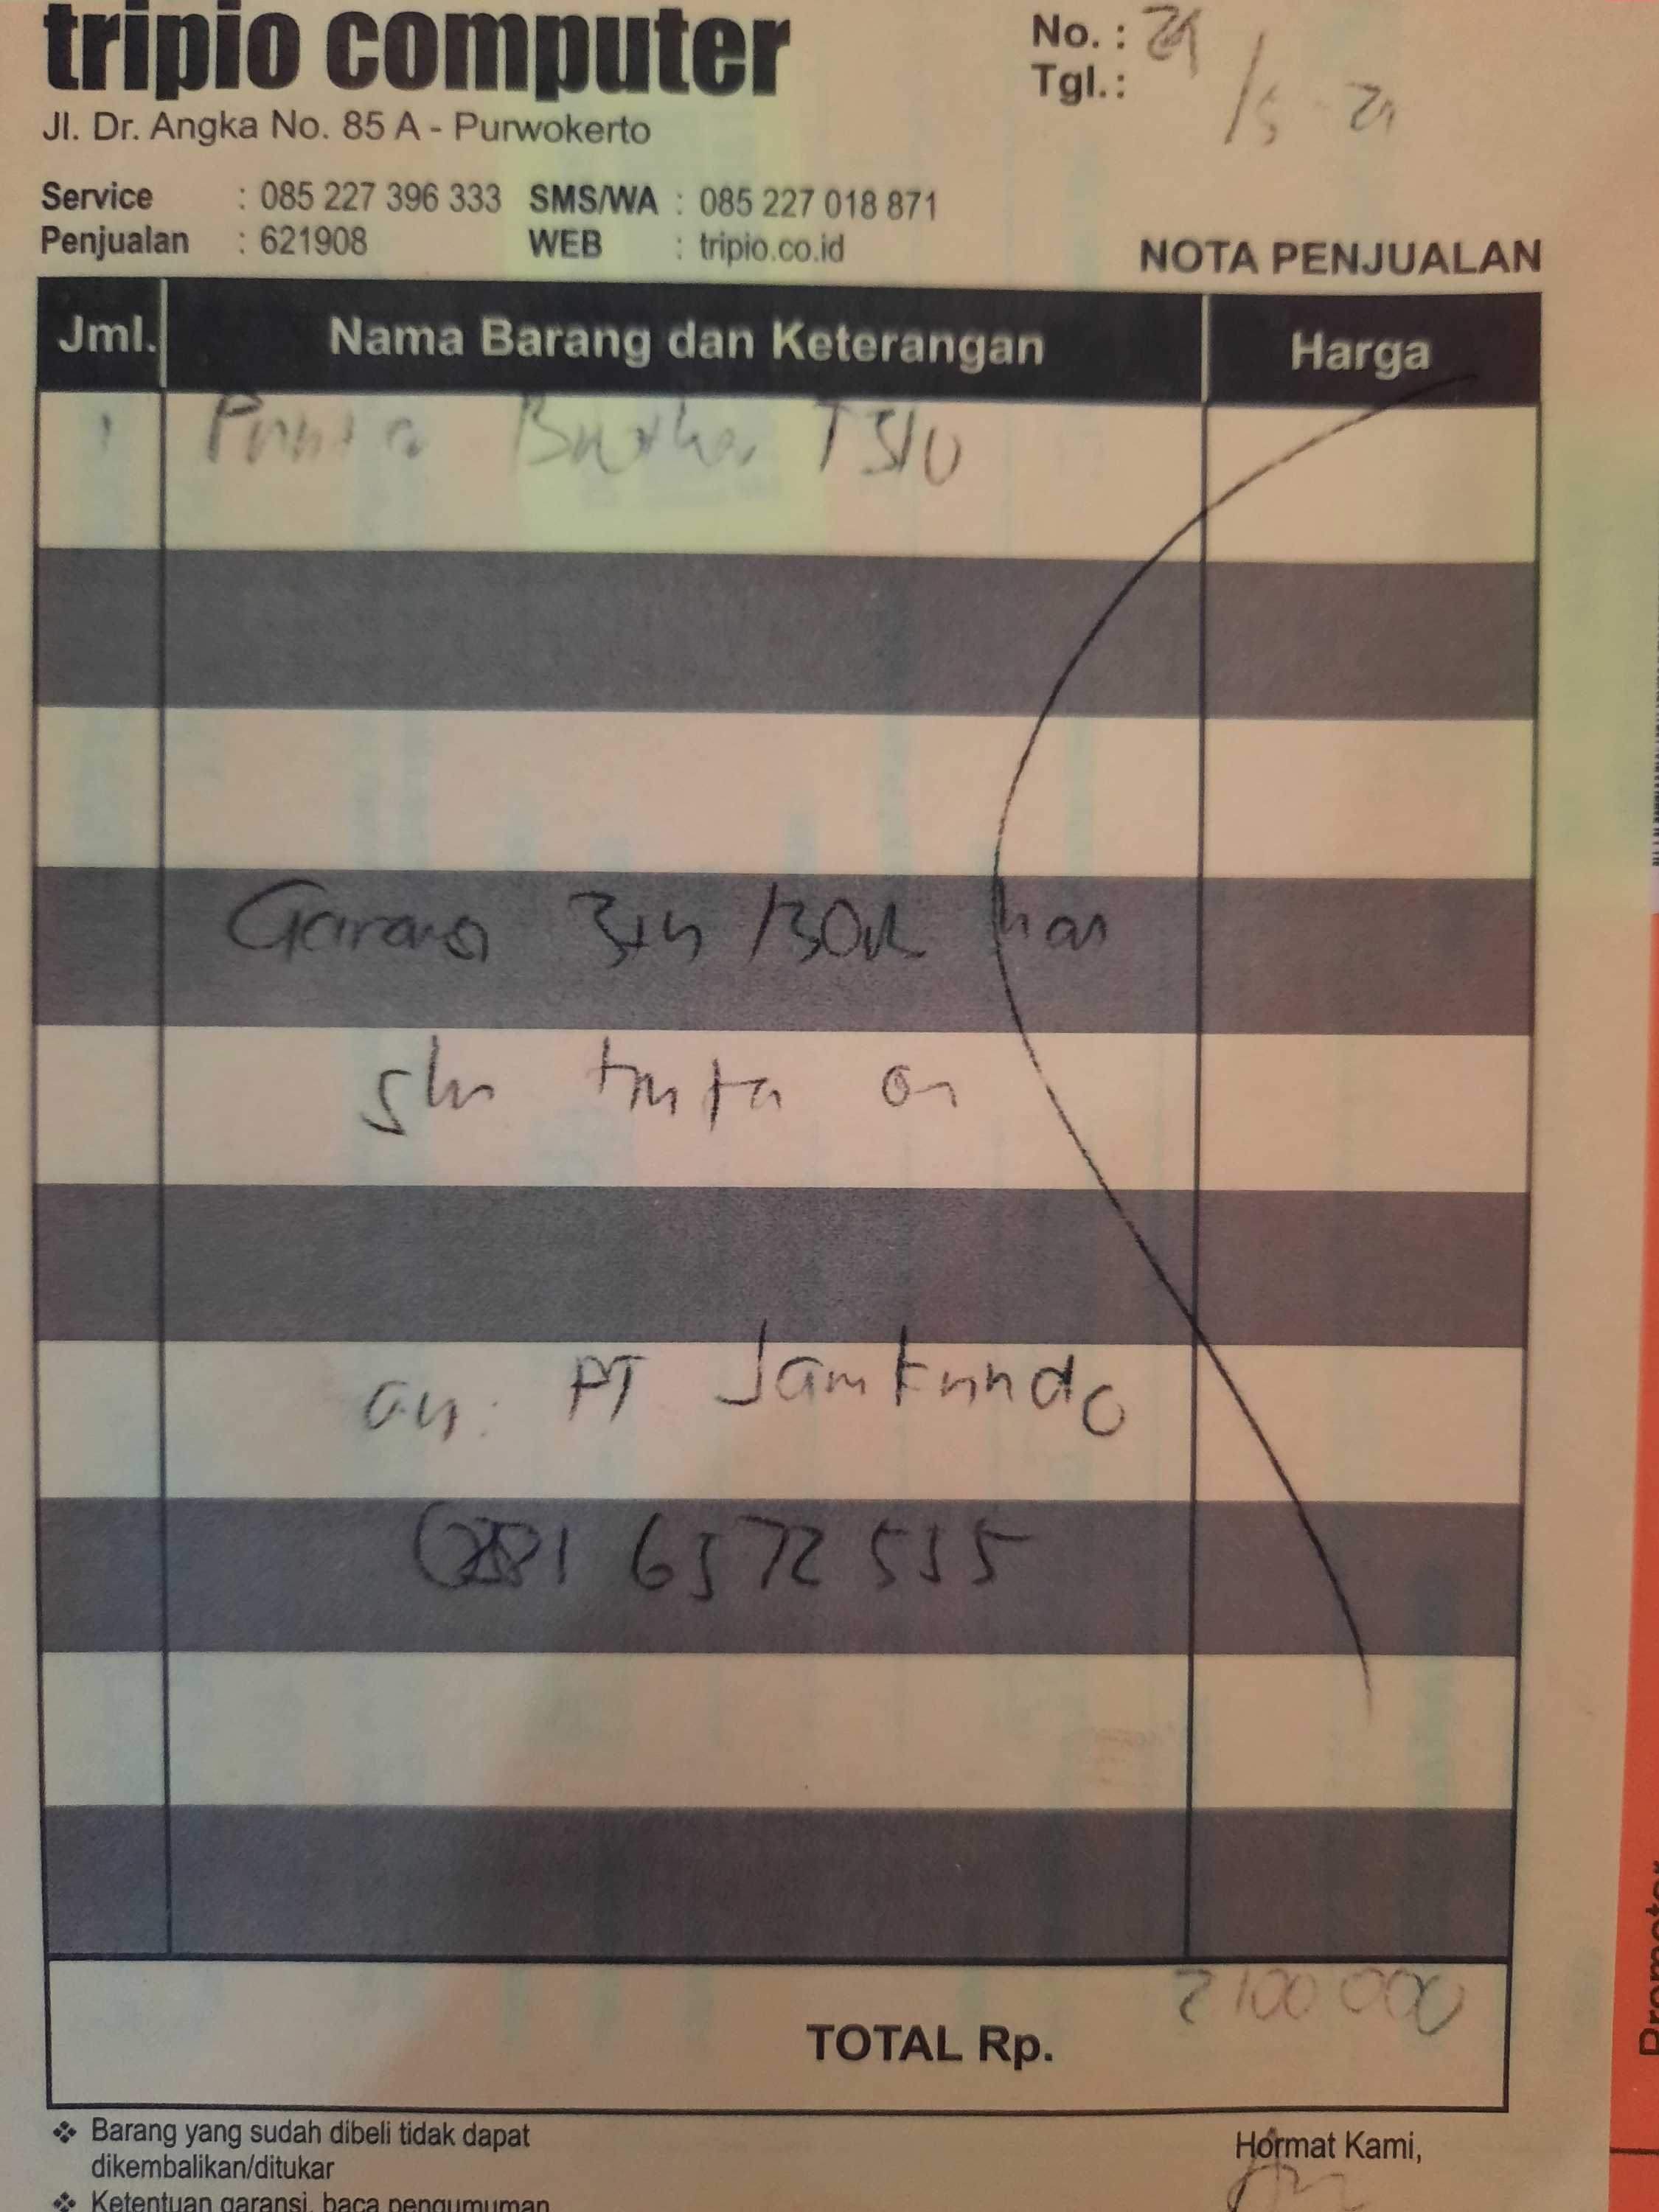 tripio computer
Jl. Dr. Angka No. 85 A - Purwokerto
No. :
Tgl. :
Service : 085 227 396 333 SMS/WA : 085 227 018 871
Penjualan : 621908 WEB : tripio.co.id
NOTA PENJUALAN
Jml. Nama Barang dan Keterangan Harga
1 Printer Brother T310
Garansi 3th /30k
tinta
an. PT Jamkrindo
6572 555
2100 000
TOTAL Rp.
❖ Barang yang sudah dibeli tidak dapat
dikembalikan/ditukar
❖ Ketentuan garansi, baca pengumuman
Hormat Kami,
Promoter